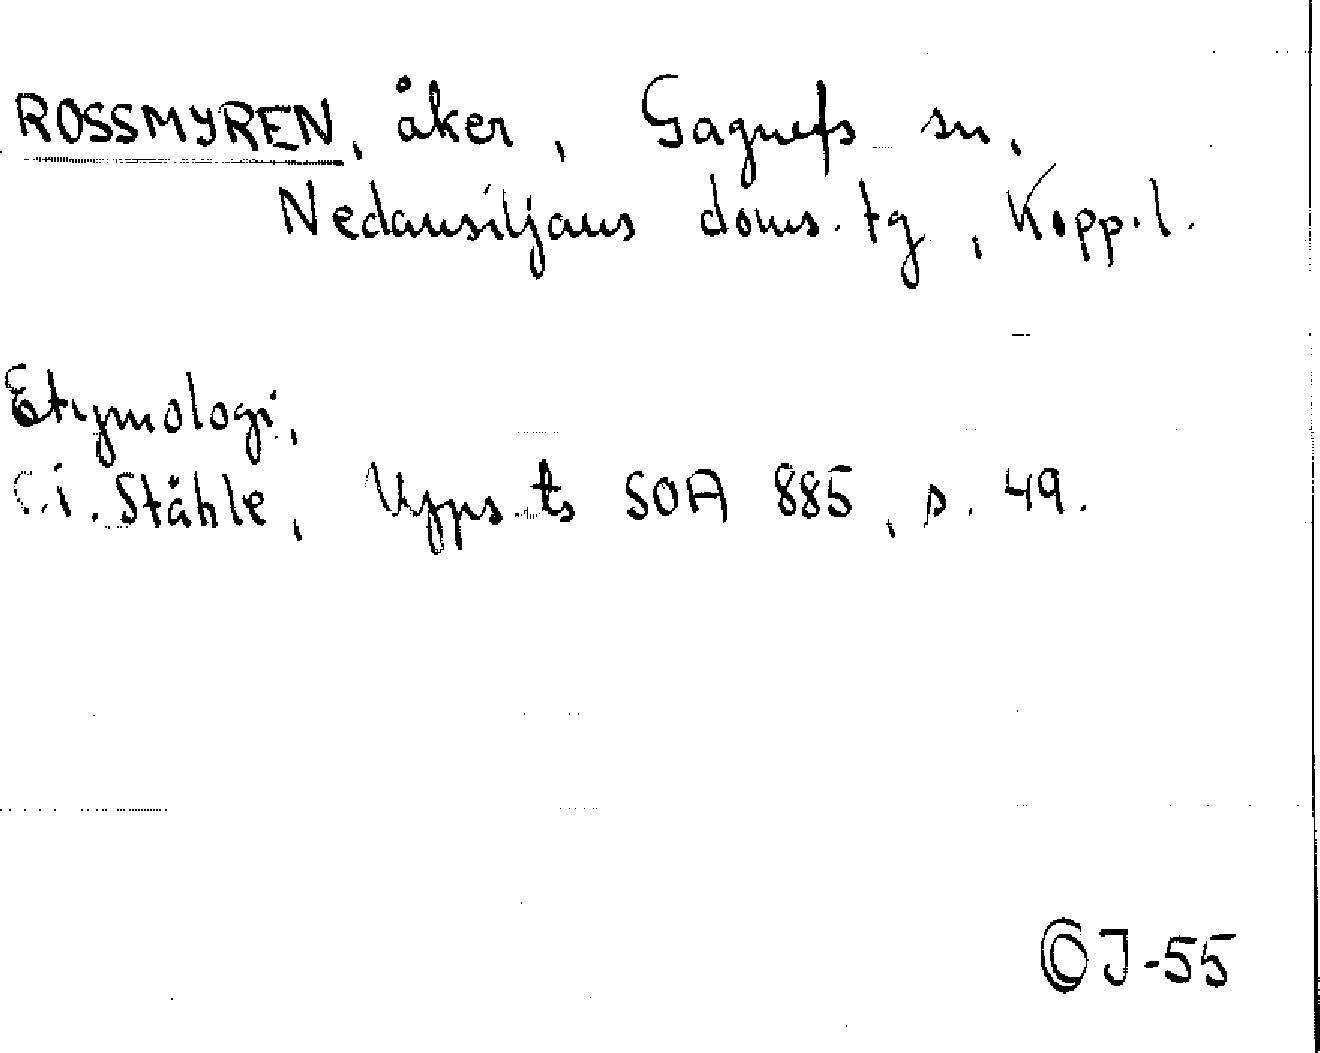 ROSSMYREN, åker, Gagnefs sn,
Nedansiljans doms.tg, Kopp.l.
Etymologi,
C.i. Ståhle, Upps.ts SOA 885, s. 49.
J-55